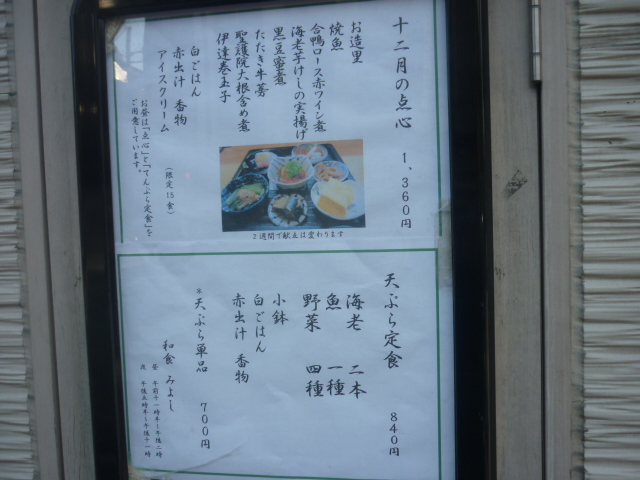 十二月の点心 1,360円
お造里
焼魚
合鴨ロース赤ワイン煮
海老芋けしの実揚げ
黒豆蜜煮
たたき牛蒡
聖護院大根含め煮
伊達巻玉子
白ごはん
赤出汁 香物
アイスクリーム
(限定15食)
お昼は「点心」と「てんぷら定食」を
ご用意しています。
2週間で献立は変わります
天ぷら定食 840円
海老 二本
魚 一種
野菜 四種
小鉢
白ごはん
赤出汁 香物
※天ぷら単品 700円
和食 みよし
昼 午前十一時半~午後二時
夜 午後五時半~午後十一時